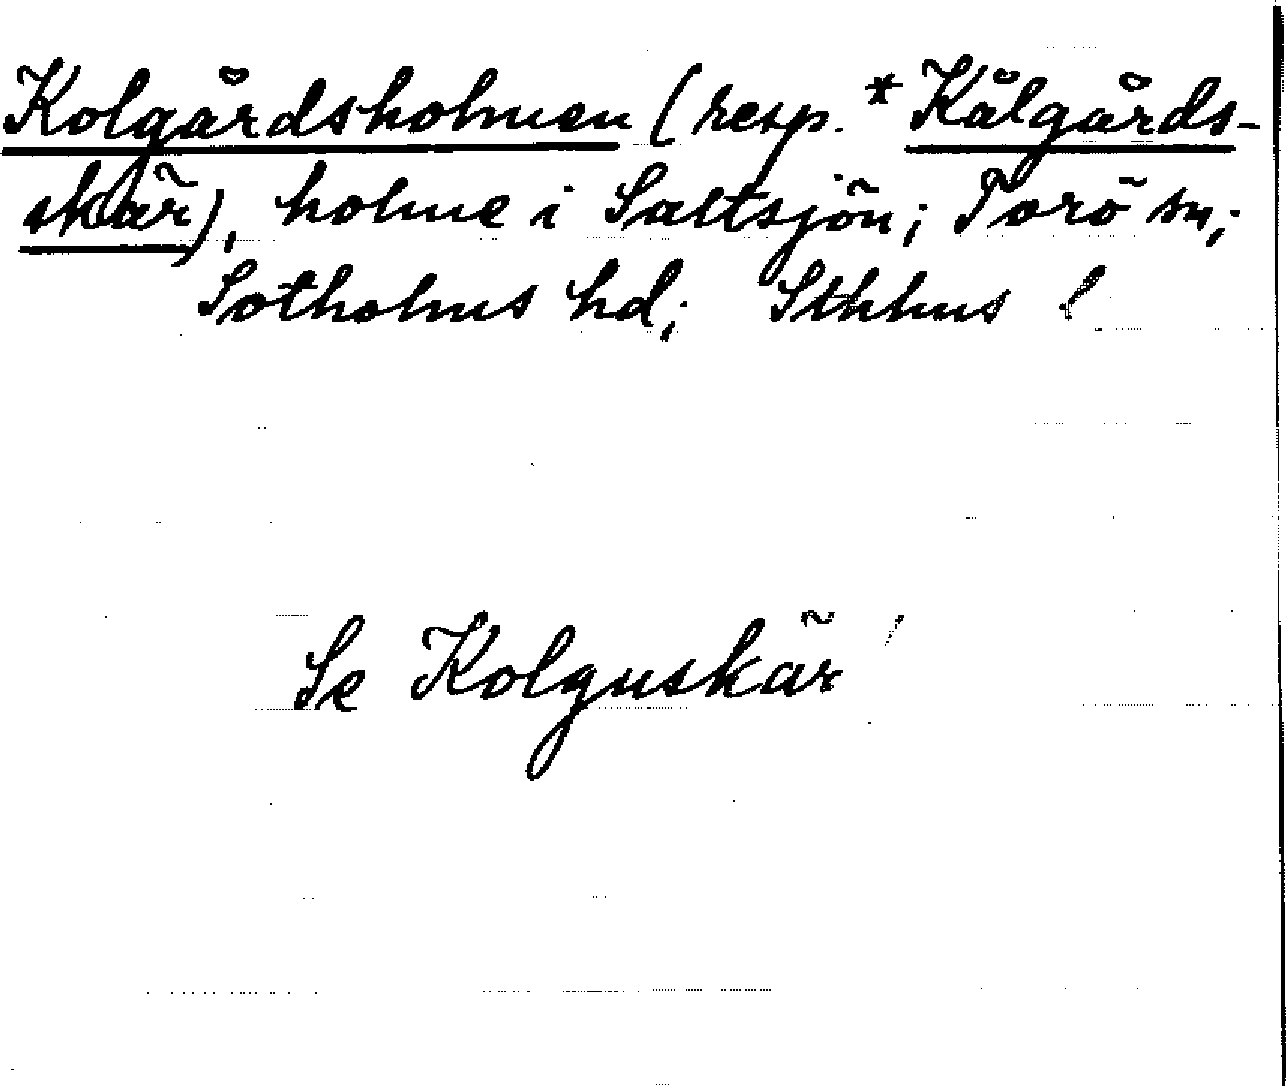 Kolgårdsholmen (resp. *Kålgårds-
skär), holme i Saltsjön; Torö sn;
Sotholms hd; Sthlms l
Se Kolguskär